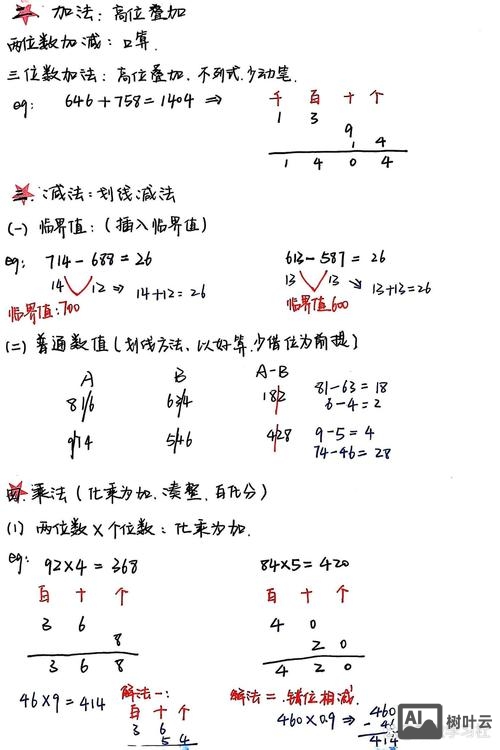 二 加法：高位叠加
两位数加减：口算.
三位数加法：高位叠加，不列式，少动笔.
eg： 646+758=1404 ⇒ 千 百 十 个
1 3
9
1 4
1 4 0 4
三.减法：划线减法
(一) 临界值：(插入临界值)
eg： 714-688=26 613-587=26
14 12 ⇒ 14+12=26 13 13 ↘ 13+13=26
临界值:700 临界值600
(二) 普通数值(划线方法，以好算，少借位为前提)
A B A-B
81/6 63/4 18/2 81-63=18
6-4=2
9/14 5/46 4/28 9-5=4
74-46=28
四.乘法(化乘为加，凑整，百化分)
(1) 两位数×个位数：化乘为加.
eg： 92×4=368 84×5=420
百 十 个 百 十 个
3 6 4 0
8 2 0
3 6 8 4 2 0
46×9=414 解法一： 解法二.错位相减
百 十 个 460×0.9 ⇒ 460
3 6 - 46
5 4 414
AI 树叶云
学习社